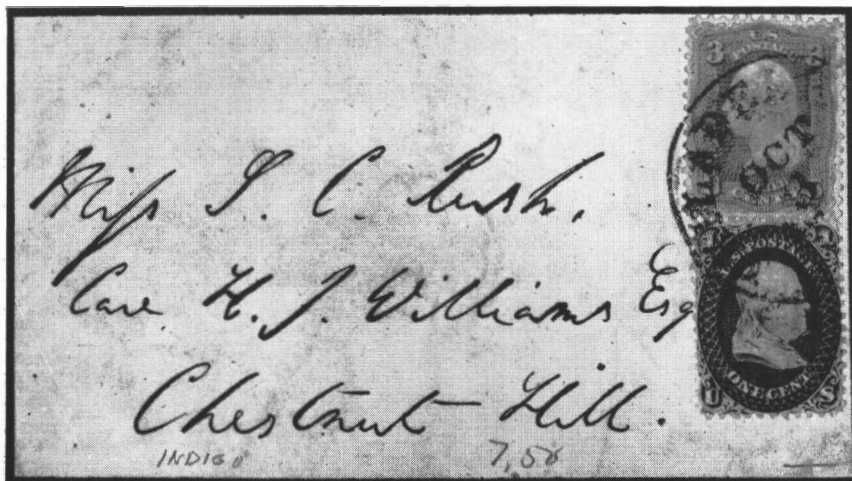 Miss S. C. Rush.
Care H. J. Williams Esq
Chestnut Hill.
INDIGO
7,50
3 3
OCT
U.S. POSTAGE
ONE CENT
U S